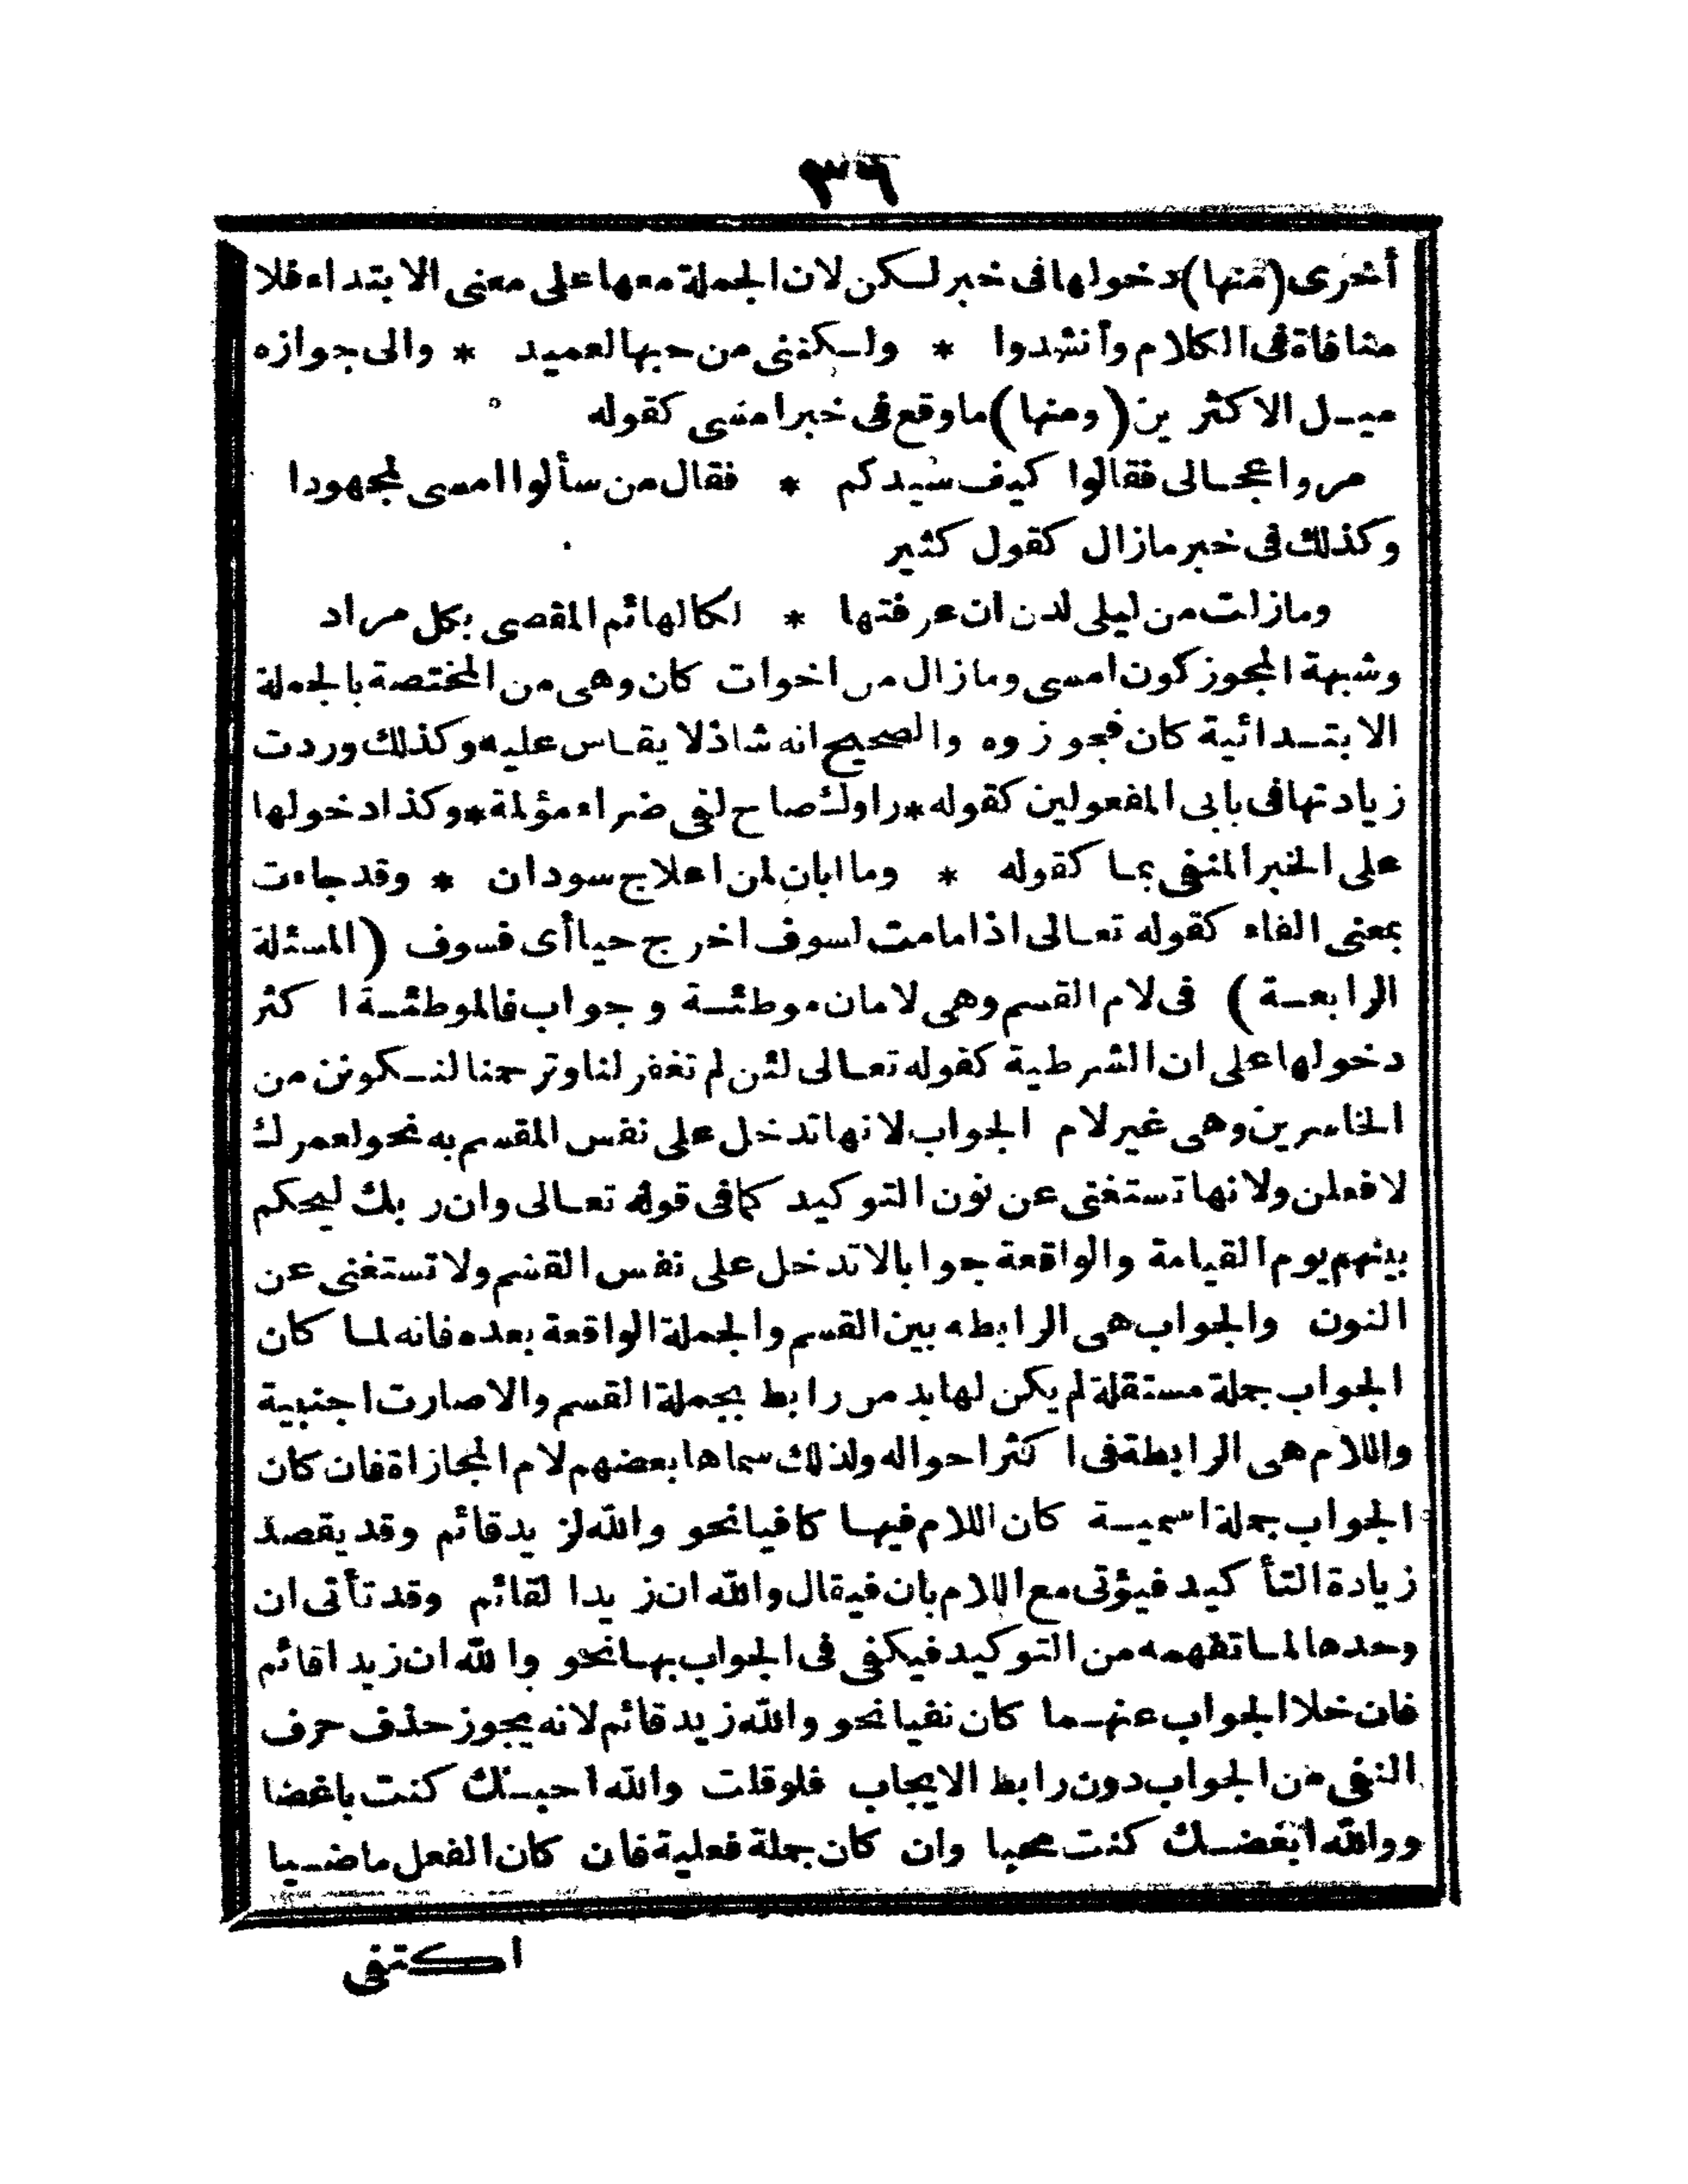 ٣٦
أخرى (منها) دخولها فى خبر لكن لان الجملة معها على معنى الابتداء فلا
منافاة فى الكلام وأنشدوا * ولكننى من حبها لعميد * والى جوازه
ميل الاكثرين (ومنها) ما وقع فى خبر امسى كقوله
مروا عجالى فقالوا كيف سيدكم * فقال من سألوا امسى لمجهودا
وكذلك فى خبر مازال كقول كثير
ومازلت من ليلى لدن ان عرفتها * لكالهائم المقصى بكل مراد
وشبهة المجوز كون امسى ومازال من اخوات كان وهى من المختصة بالجملة
الابتدائية كان فجوزوه والصحيح انه شاذ لا يقاس عليه وكذلك وردت
زيادتها فى بابى المفعولين كقوله * راوك صاح لفى ضراء مؤلمة * وكذا دخولها
على الخبر المنفى بما كقوله * وما ابان لمن اعلاج سودان * وقد جاءت
بمعنى الفاء كقوله تعالى اذا مامت لسوف اخرج حيا أى فسوف (المسئلة
الرابعة) فى لام القسم وهى لامان موطئة وجواب فالموطئة اكثر
دخولها على ان الشرطية كقوله تعالى لئن لم تغفر لنا وترحمنا لنكونن من
الخاسرين وهى غير لام الجواب لانها تدخل على نفس المقسم به نحو لعمرك
لافعلن ولانها تستغنى عن نون التوكيد كما فى قوله تعالى وان ربك ليحكم
بينهم يوم القيامة والواقعة جوابا لا تدخل على نفس القسم ولا تستغنى عن
النون والجواب هى الرابطه بين القسم والجملة الواقعة بعده فانه لما كان
الجواب جملة مستقلة لم يكن لها بد من رابط بجملة القسم والا صارت اجنبية
واللام هى الرابطة فى اكثر احواله ولذلك سماها بعضهم لام المجازاة فان كان
الجواب جملة اسمية كان اللام فيها كافيا نحو والله لزيد قائم وقد يقصد
زيادة التأكيد فيؤتى مع اللام بان فيقال والله ان زيدا لقائم وقد تأتى ان
وحدها لما تفهمه من التوكيد فيكفى فى الجواب بها نحو والله ان زيدا قائم
فان خلا الجواب عنهما كان نفيا نحو والله زيد قائم لانه يجوز حذف حرف
النفى من الجواب دون رابط الايجاب فلو قلت والله احبك كنت باغضا
ووالله ابغضك كنت محبا وان كان جملة فعلية فان كان الفعل ماضيا
اكتفى